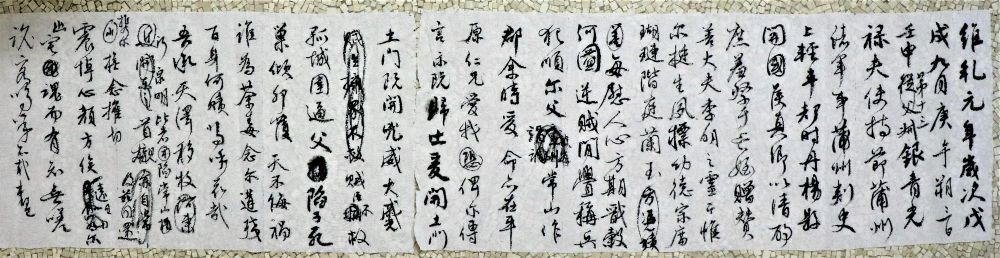 維乾元年歲次戊
戌九月庚午朔三日
壬申從父第十三叔銀青光
祿夫使持節蒲州
諸軍事蒲州刺史
上輕車都尉丹楊縣
開國侯真卿以清酌
庶羞祭于亡姪贈贊
善大夫季明之靈曰惟
尔挺生夙標幼德宗廟
瑚璉階庭蘭玉
每慰人心方期戩穀
何圖逆賊間釁稱兵
犯順尔父常山作
郡余時受命亦在平
原仁兄愛我俾尔傳
言尔既歸止爰開土門
土門既開兇威大蹙
賊臣不救
孤城圍逼父陷子死
巢傾卵覆天不悔禍
誰為荼毒念尔遘殘
百身何贖嗚呼哀哉
吾承天澤移牧河東
泉明比者再陷常山攜
首櫬
撫念摧切
震悼心顏方俟
幽宅魂而有知無嗟